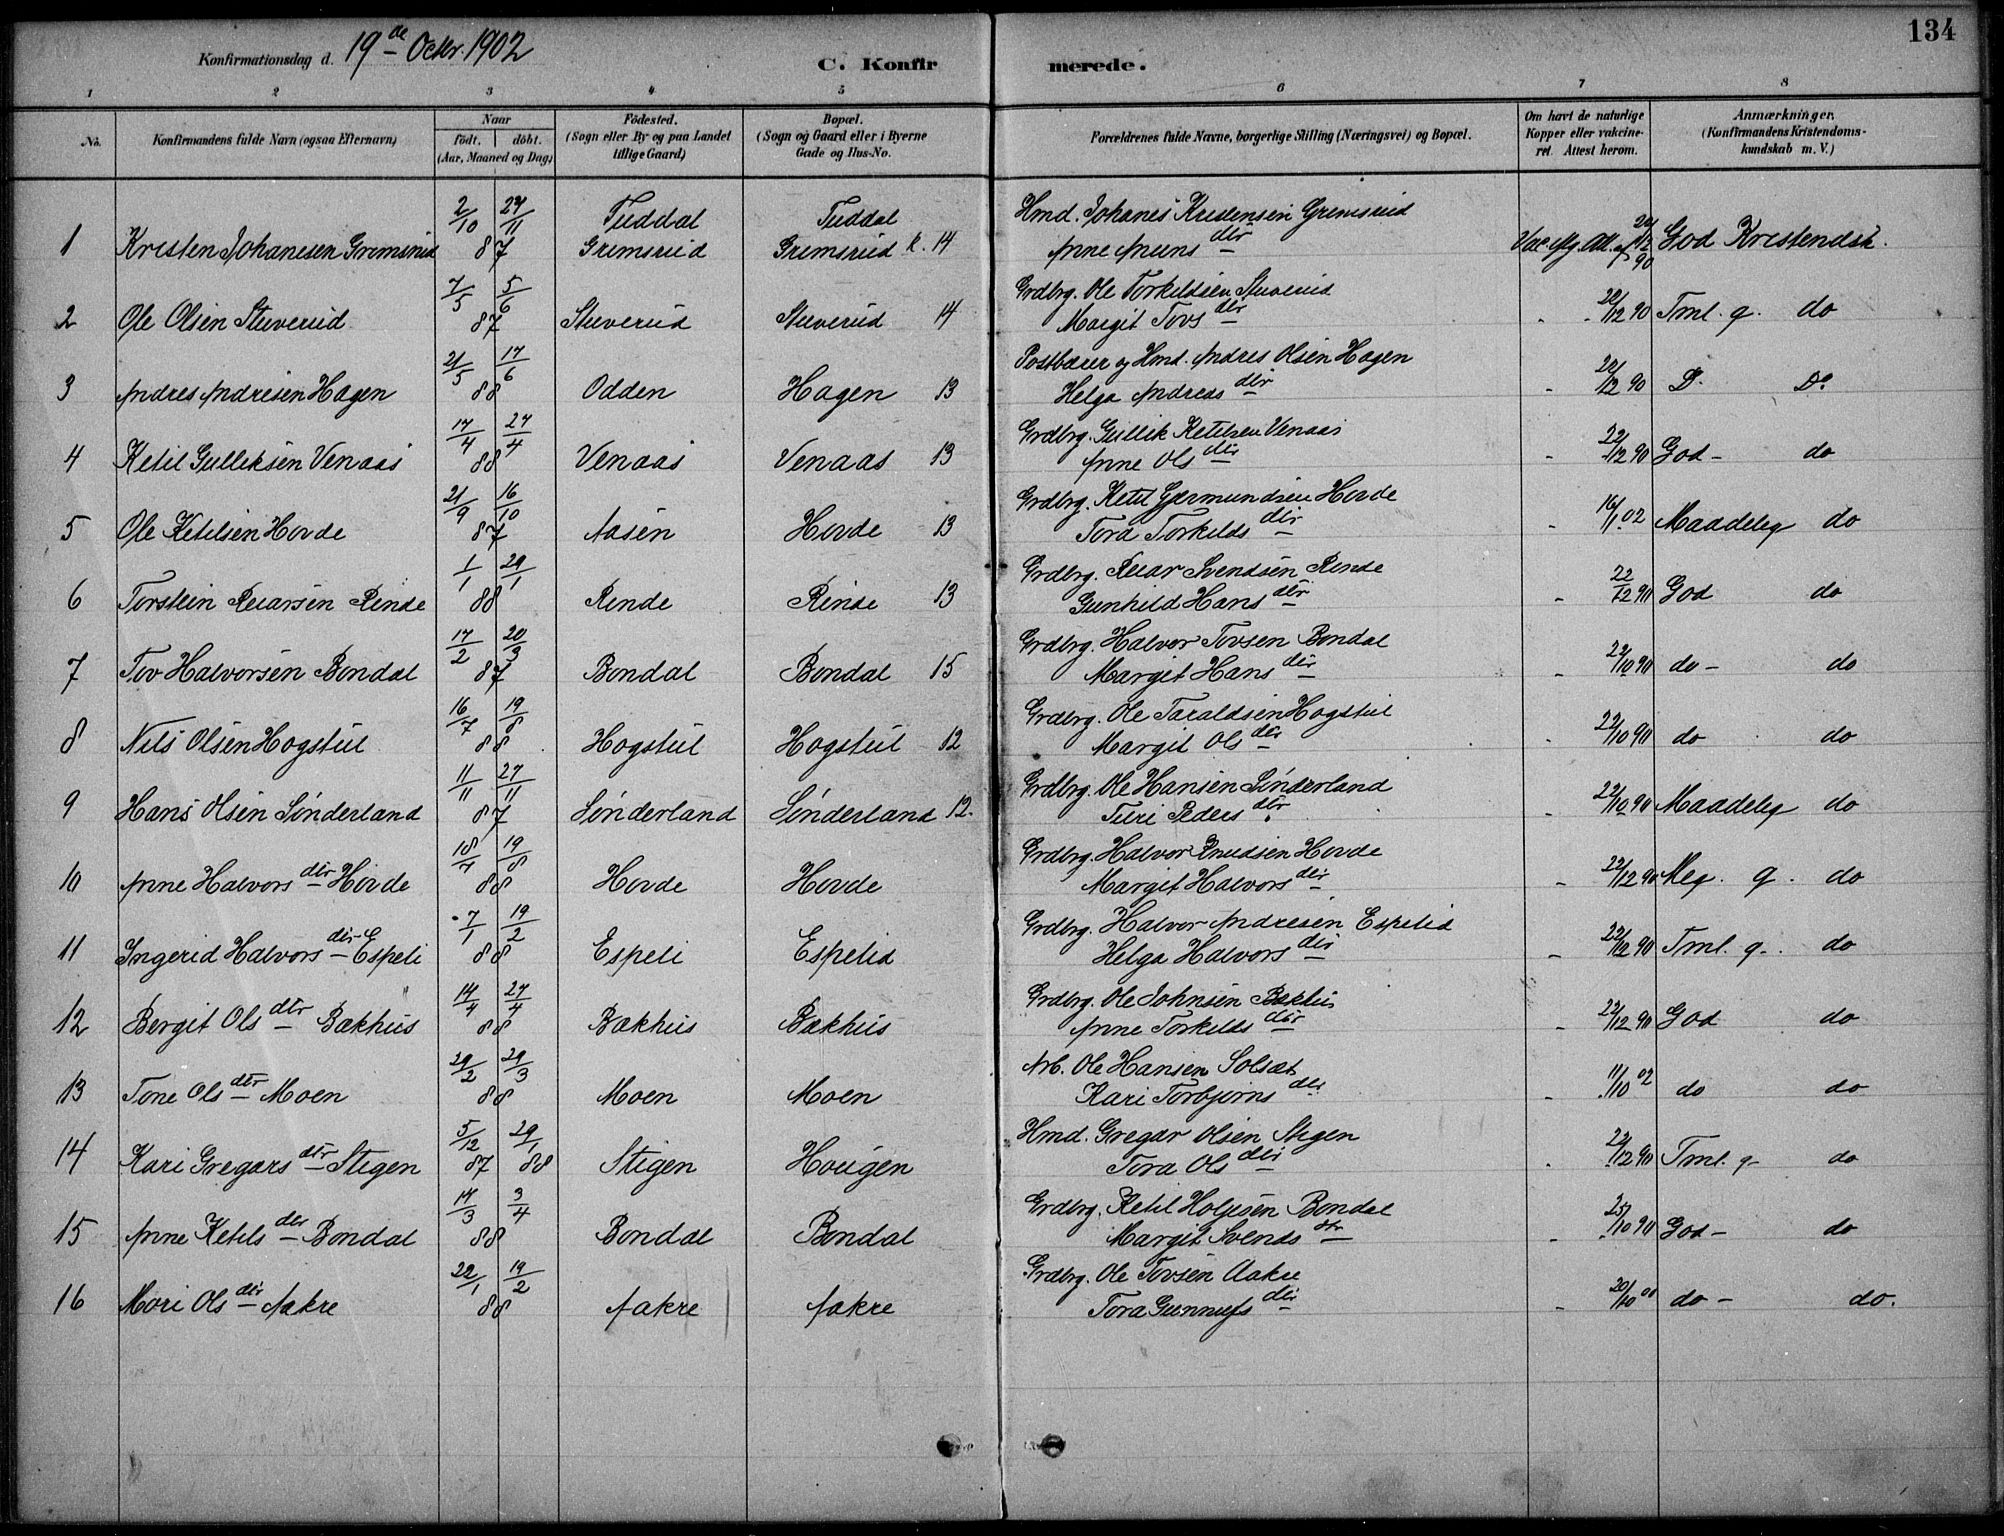 134
Konfirmationsdag d. 19de Octbr. 1902
C. Konfirmerede.
1 2 3 4 5 6 7 8
No. Konfirmandens fulde Navn (ogsaa Efternavn) Naar født. døbt. (Aar, Maaned og Dag) Fødested. (Sogn eller By og paa Landet tillige Gaard) Bopæl. (Sogn og Gaard eller i Byerne Gade og Hus-No. Forældrenes fulde Navne, borgerlige Stilling (Næringsvei) og Bopæl. Om havt de naturlige Kopper eller vakcineret. Attest herom. Anmærkninger. (Konfirmandens Kristendomskundskab m. V.)
2/10 27/11 Tuddal Tuddal Hmd. Johanes Kristensen Gremsrud
1 Kristen Johanesen Gremsrud 87 Gremsrud Gremsrud k. 14 Anne Amuns dtr 22/12 90 God Kristendsk.
7/5 5/6 Grdbrg. Ole Torkildsen Stuverud
2 Ole Olsen Stuverud 87 Stuverud Stuverud 14 Margit Tovs dtr - 22/12 90 Tml. g. do
21/5 17/6 Postbærer og Hmd. Andres Olsen Hagen
3 Andres Andresen Hagen 88 Odden Hagen 13 Helga Andreas dtr - 22/12 90 D. Do
17/4 27/4 Grdbrg. Gullik Ketilsen Venaas
4 Ketil Gulliksen Venaas 88 Venaas Venaas 13 Anne Ols dtr - 22/12 90 God - do
21/9 16/10 Grdbrg. Ketil Gjermundsen Hovde
5 Ole Ketilsen Hovde 87 Aasen Hovde 13 Tora Torkilds dtr - 16/1 02 Maadelig do
1/1 29/1 Grdbrg. Ruar Svendsen Rinde
6 Torstein Ruarsen Rinde 88 Rinde Rinde 13 Gunhild Hans dtr - 22/12 90 God do
17/2 20/3 Grdbrg. Halvor Tovsen Bondal
7 Tov Halvorsen Bondal 87 Bondal Bondal 15 Margit Hans dtr - 22/10 90 do - do
16/7 19/8 Grdbrg. Ole Taraldsen Hogstul
8 Nils Olsen Hogstul 88 Hogstul Hogstul 12 Margit Ols dtr - 22/10 90 do do
11/11 27/11 Grdbrg. Ole Hansen Sønderland
9 Hans Olsen Sønderland 87 Sønderland Sønderland 12. Turi Peders dtr. - 22/10 90 Maadelig do
18/7 19/8 Grdbrg. Halvor Knudsen Hovde
10 Anne Halvors dtr Hovde 88 Hovde Hovde Margit Halvors dtr - 22/12 90 Meg. g. do
7/1 19/2 Grdbrg. Halvor Andresen Espelid
11 Ingerid Halvors dtr Espeli 88 Espeli Espelid Helga Halvors dtr - 22/12 90 Tml. g. do
14/4 27/4 Grdbrg. Ole Johnsen Bækhus
12 Bergit Ols dtr Bækhus 88 Bækhus Bækhus Anne Torkilds dtr - 22/12 90 God do
29/2 29/3 Arb. Ole Hansen Solsæt
13 Tone Ols dtr Moen 88 Moen Moen Kari Torbjørns dtr - 11/10 02 do do
5/12 29/1 Hmd. Gregar Olsen Stigen
14 Kari Gregars dtr Stigen 87 88 Stigen Hougen Tora Ols dtr - 22/12 90 Tml. g do
14/3 3/4 Grdbrg. Ketil Holjesen Bondal
15 Anne Ketils dtr Bondal 88 Bondal Bondal Margit Svends dtr - 25/10 90 God - do
22/1 19/2 Grdbrg. Ole Tovsen Aakre
16 Mari Ols dtr Aakre 88 Aakre Aakre Tora Gunnufs dtr - 20/10 00 do - do.